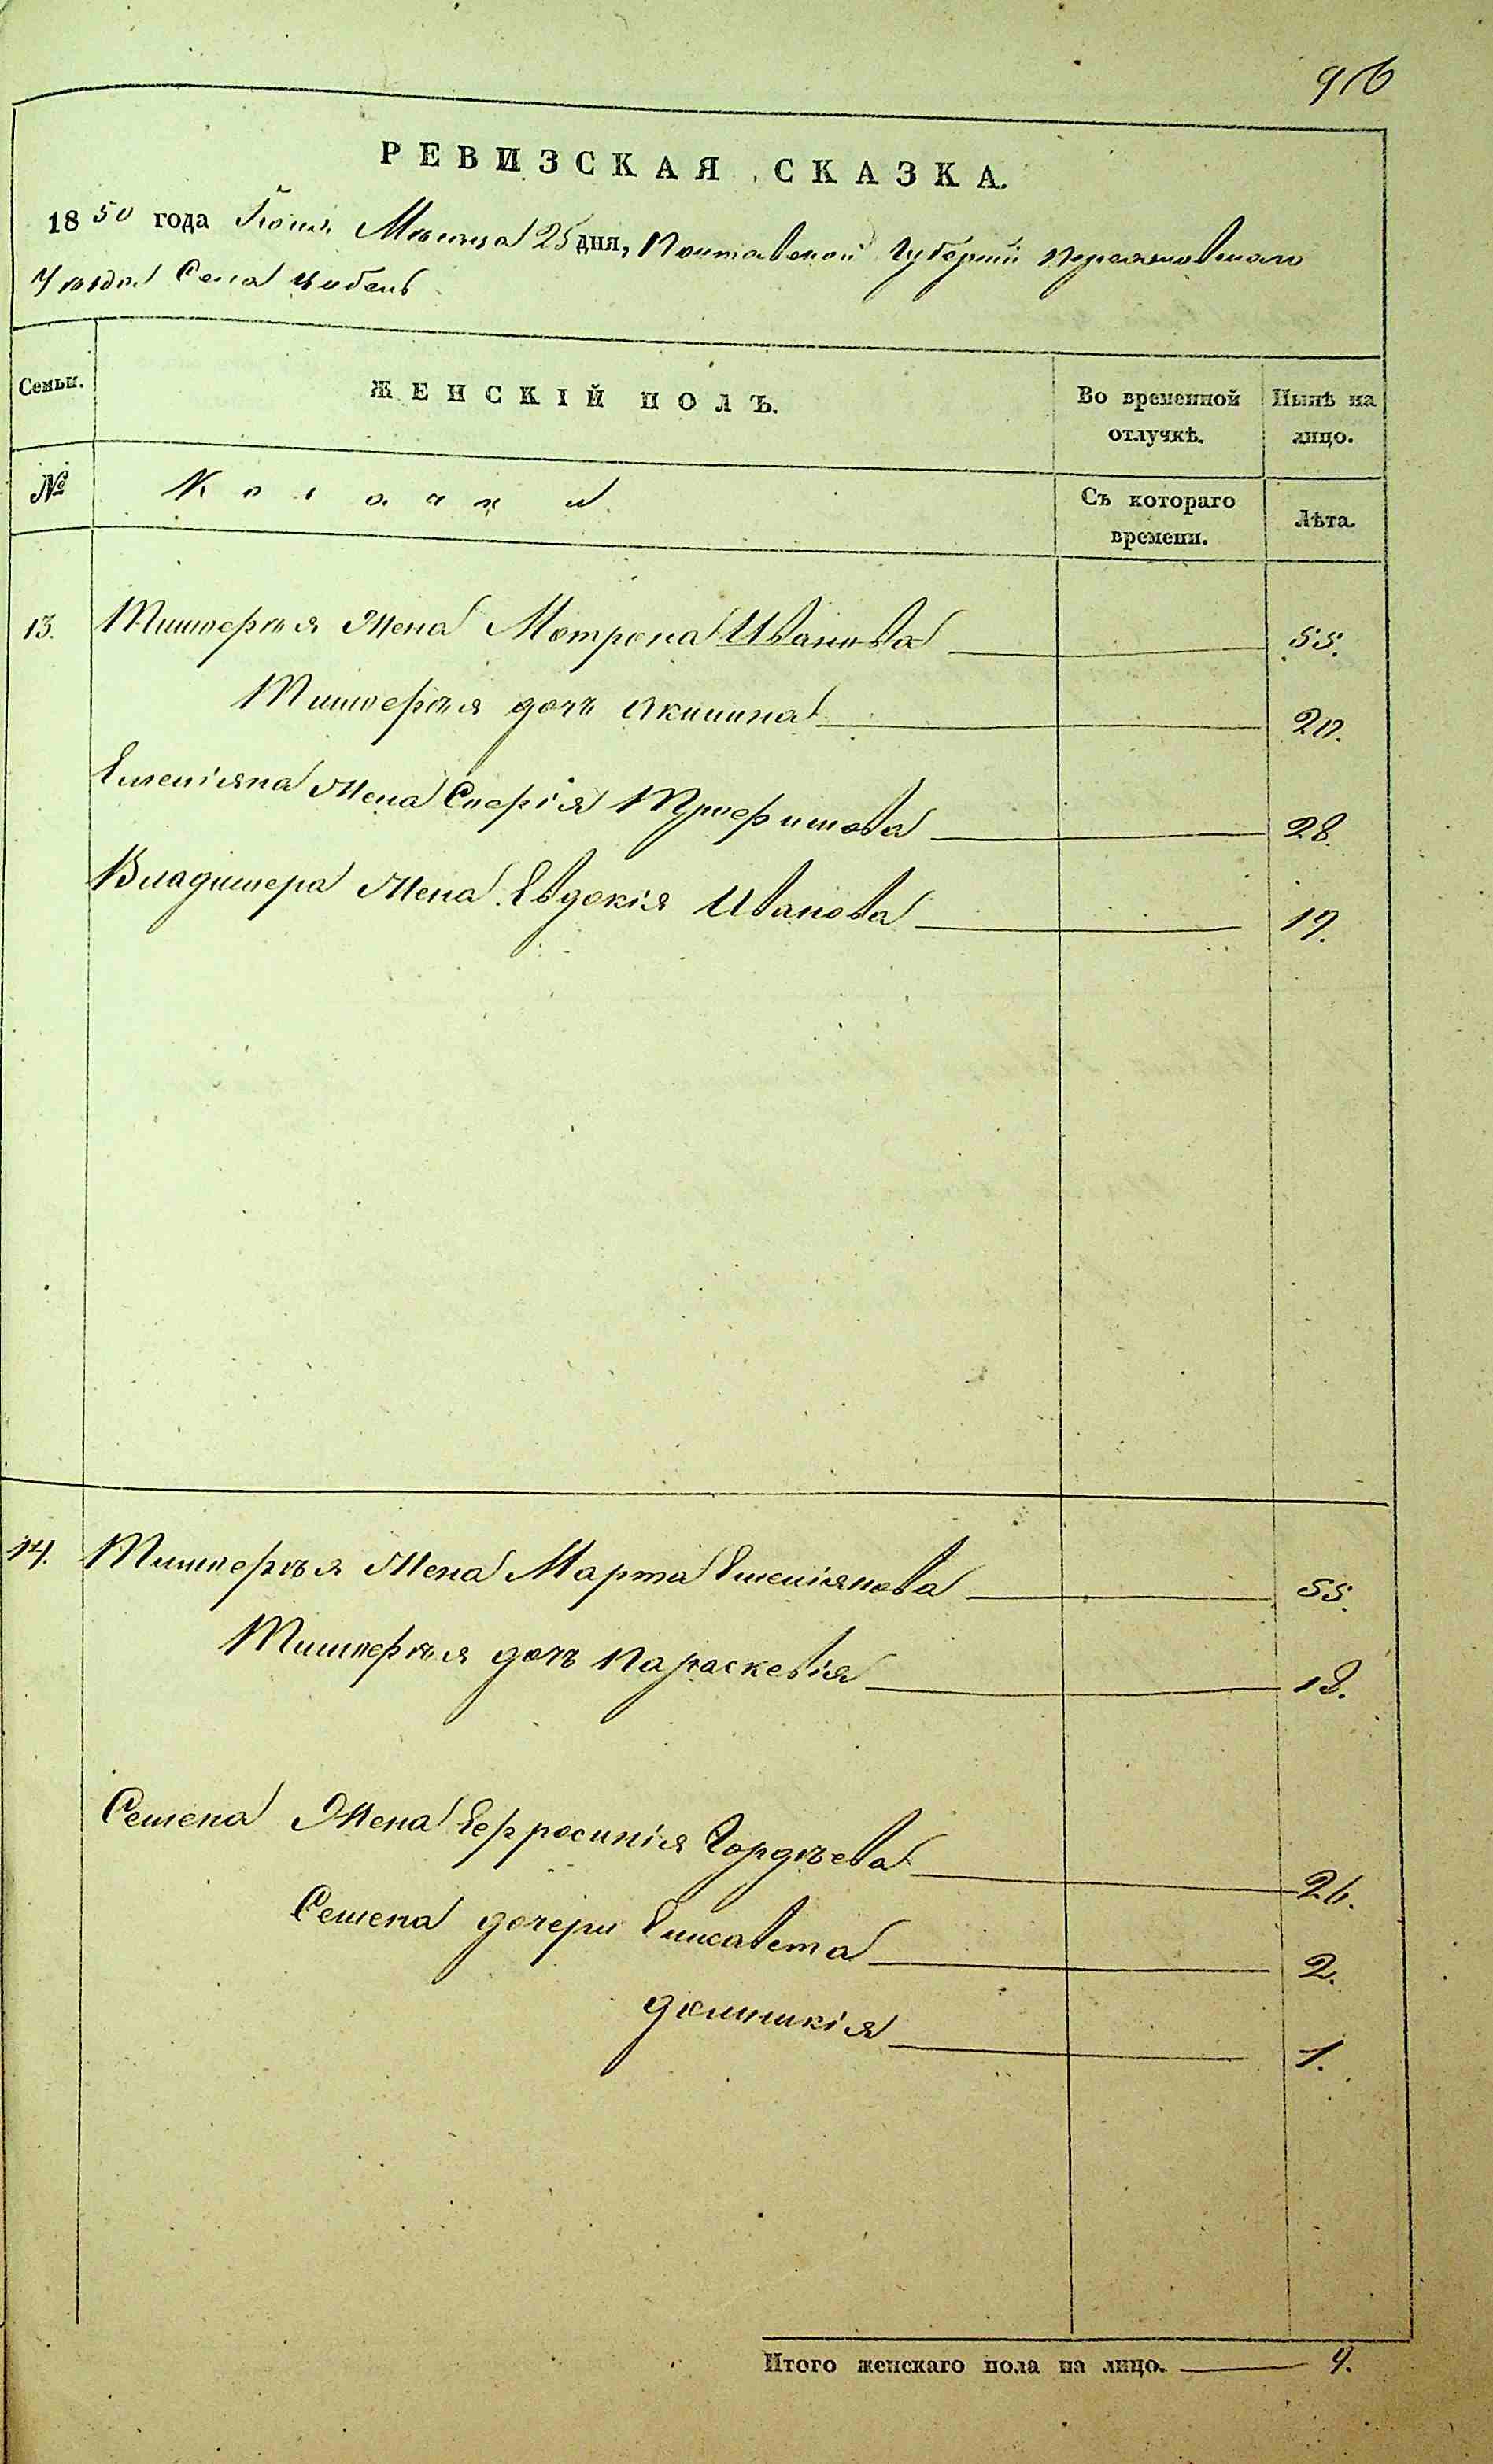 916
РЕВИЗСКАЯ СКАЗКА.
1850 года Іюня Мѣсяца 25 дня, Полтавской Губерніи Переяславскаго
Уѣзда Села Цибель
Семьи. ЖЕНСКІЙ ПОЛЪ. Во временной отлучкѣ. Нынѣ на лицо.
№ Козачки Съ котораго времени. Лѣта.
13. Тимоѳѣя Жена Мотрона Иванова 55.
Тимоѳѣя дочь Акилина 20.
Емеліяна Жена Софія Трофимова 28.
Владимера Жена Евдокія Иванова 19.
14. Тимоѳѣя Жена Марта Емеліянова 55.
Тимоѳѣя дочь Параскевія 18.
Семена Жена Ефросинія Гордѣева 26.
Семена дочери Елисавета 2.
Домникія 1.
Итого женскаго пола на лицо. 9.